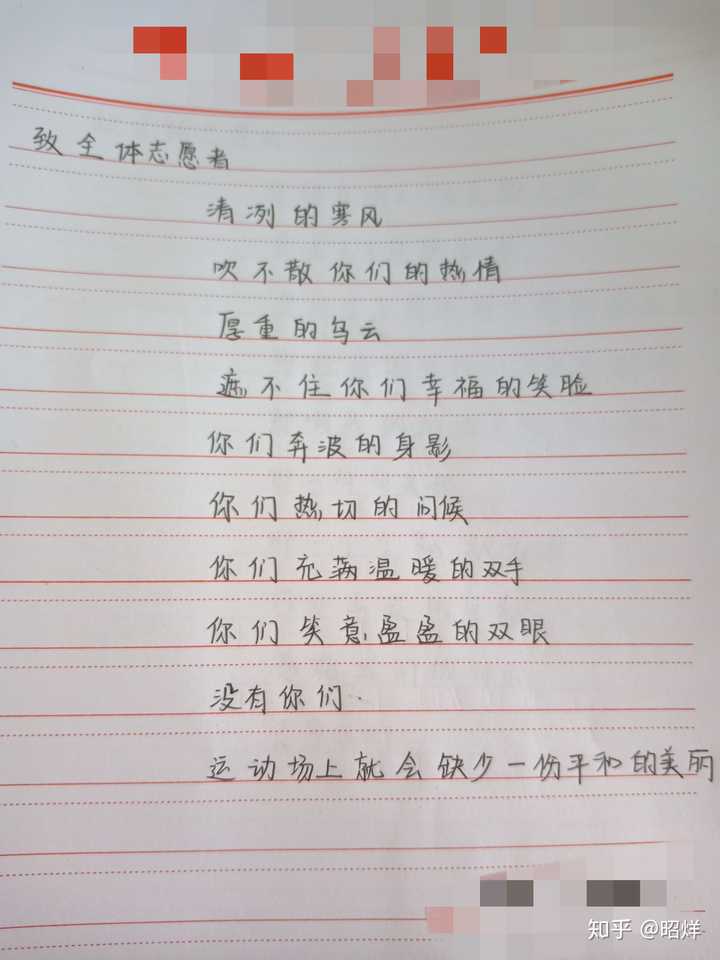 致全体志愿者
清冽的寒风
吹不散你们的热情
厚重的乌云
遮不住你们幸福的笑脸
你们奔波的身影
你们热切的问候
你们充满温暖的双手
你们笑意盈盈的双眼
没有你们.
运动场上就会缺少一份平和的美丽
知乎 @昭烊